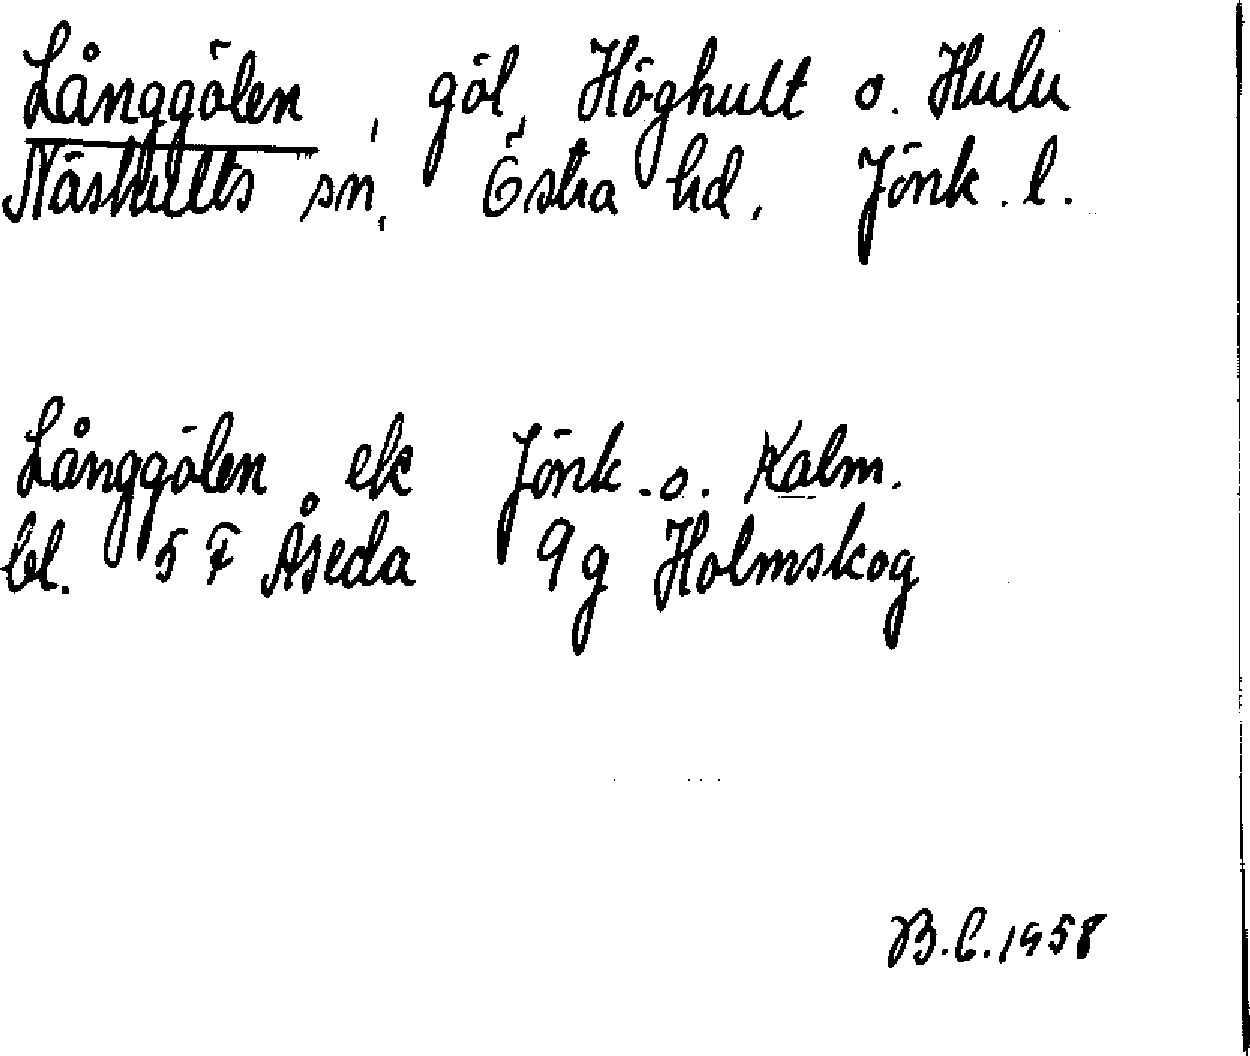 Långgölen, göl, Höghult o. Hulu
Näshults sn, Östra hd, Jönk. l.
Långgölen ek Jönk. o. Kalm.
bl. 5 F Åseda 9 g Holmskog
B.C. 1958